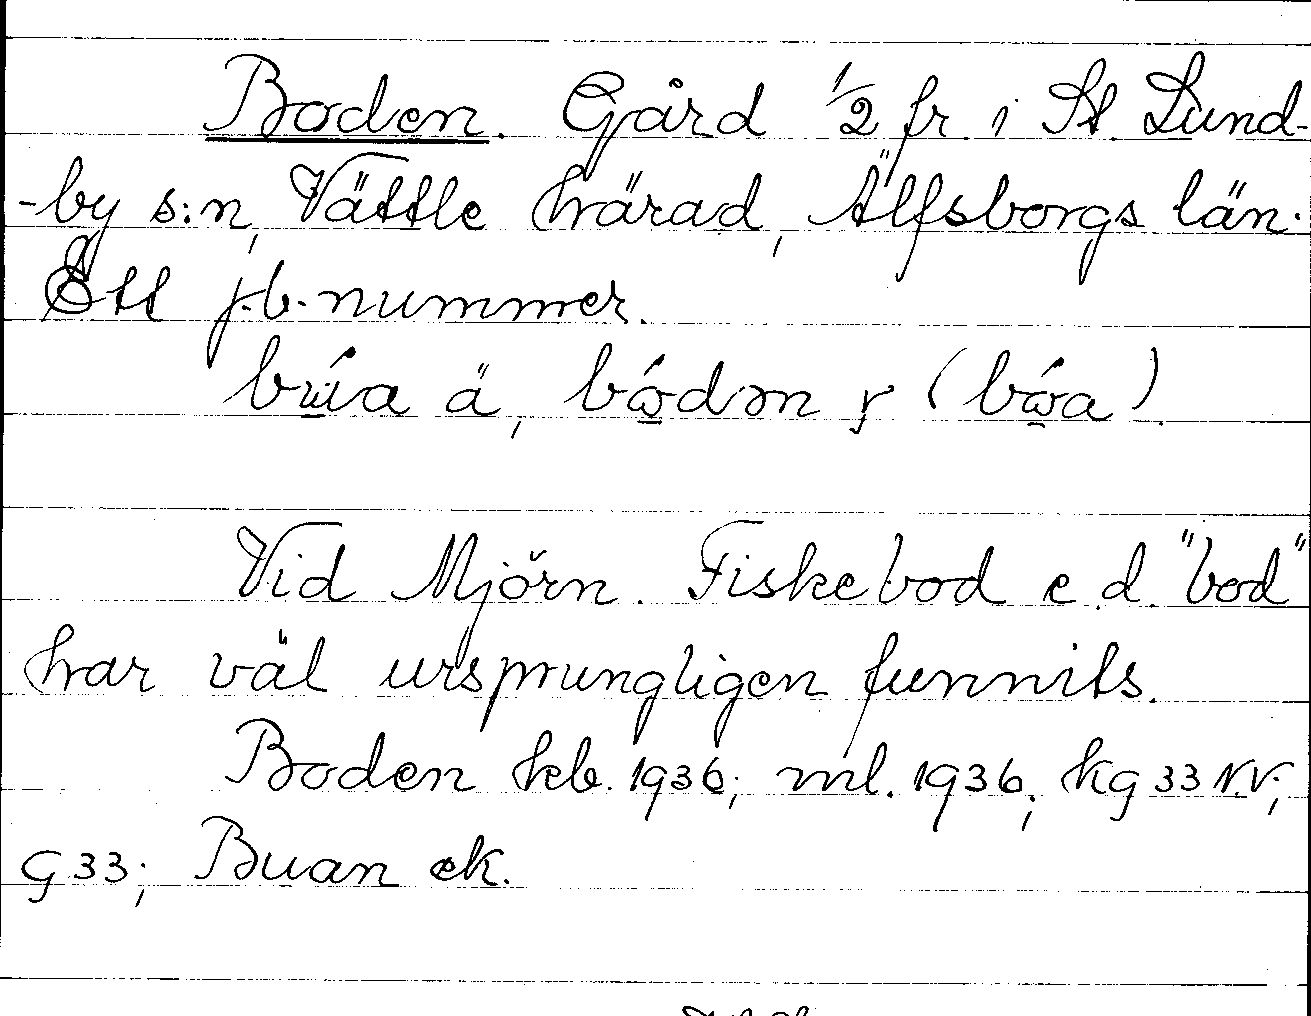 Boden. Gård 1/2 fr. i St. Lund-
-by s:n, Vättle härad, Älfsborgs län.
Ett j.b. nummer.
ä,
Vid Mjörn. Fiskebod e. d. "bod"
har väl ursprungligen funnits.
Boden kb. 1936; ml. 1936; Kg 33 N.V;
G 33; Buan ek.